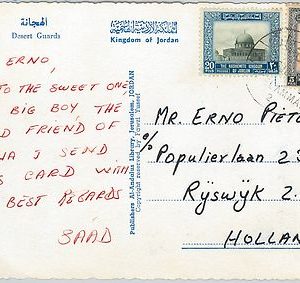 الهجانة
Desert Guards
المملكة الأردنية الهاشمية
Kingdom of Jordan
ERNO,
TO THE SWEET ONE
BIG BOY THE
D FRIEND OF
I SEND
S CARD WITH
BEST REGARDS
SAAD
Publishers Al-Andalus Library, Jerusalem - JORDAN
Copyright reserved by
20
THE HASHEMITE KINGDOM
OF JORDAN
٢٠
MR. ERNO PIET
c/o Populierlaan 2
Ryswyk 2.
HOLLAN